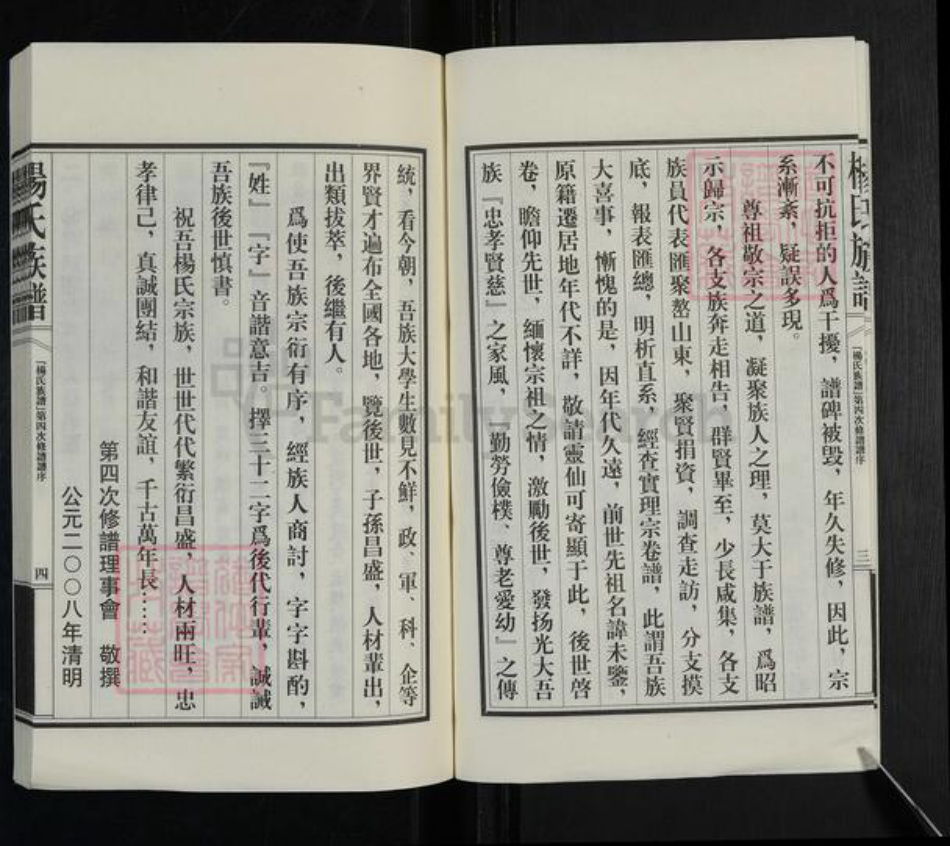 楊氏族譜
『楊氏族譜』第四次修譜譜序
三
不可抗拒的人爲干擾，譜碑被毀，年久失修，因此，宗
系漸紊，疑誤多現。
尊祖敬宗之道，凝聚族人之理，莫大于族譜，爲昭
示歸宗，各支族奔走相告，群賢畢至，少長咸集，各支
族員代表匯聚嶅山東，聚賢捐資，調查走訪，分支摸
底，報表匯總，明析直系，經查實理宗卷譜，此謂吾族
大喜事，慚愧的是，因年代久遠，前世先祖名諱未鑒，
原籍遷居地年代不詳，敬請靈仙可寄顯于此，後世啓
卷，瞻仰先世，緬懷宗祖之情，激勵後世，發扬光大吾
族『忠孝賢慈』之家風，『勤勞儉樸、尊老愛幼』之傳
統，看今朝，吾族大學生數見不鮮，政、軍、科、企等
界賢才遍布全國各地，覽後世，子孫昌盛，人材輩出，
出類拔萃，後繼有人。
爲使吾族宗衍有序，經族人商討，字字斟酌，
『姓』『字』音諧意吉。擇三十二字爲後代行輩，誠誡
吾族後世慎書。
祝吾楊氏宗族，世世代代繁衍昌盛，人材兩旺，忠
孝律己，真誠團結，和諧友誼，千古萬年長……
第四次修譜理事會 敬撰
公元二〇〇八年清明
楊氏族譜
『楊氏族譜』第四次修譜譜序
四
FamilySearch